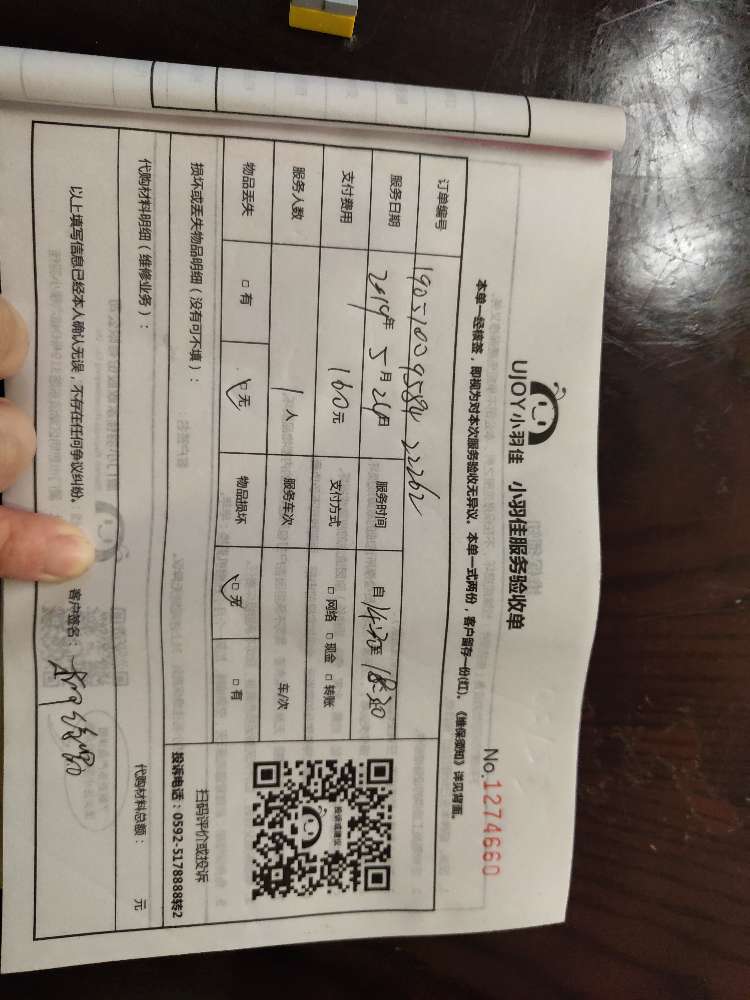 UJOY小羽佳 小羽佳服务验收单
No.1274660
本单一经核签，即视为对本次服务验收无异议。本单一式两份，客户留存一份(红)。《维保须知》详见背面。
订单编号
服务日期 2019年 5月 26日 服务时间 自 14:30至 18:30
支付费用 160元 支付方式 □ 网络 □ 现金 □ 转账
服务人数 1人 服务车次 车/次
物品丢失 □ 有 □ 无 物品损坏 □ 无 □ 有
损坏或丢失物品明细（没有可不填）：
投诉或建议
扫码评价或投诉
投诉电话：0592-5178888转2
代购材料明细（维修业务）： 代购材料总额： 元
以上填写信息已经本人确认无误，不存在任何争议纠纷。 客户签名：